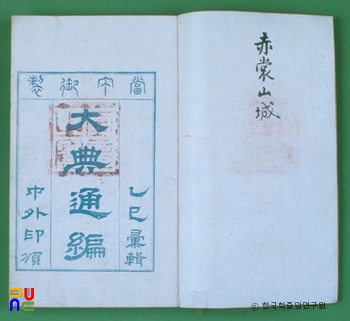 赤裳山城
當宁御製
乙巳彙輯
大典通編
中外印頒
ⓒ 한국학중앙연구원